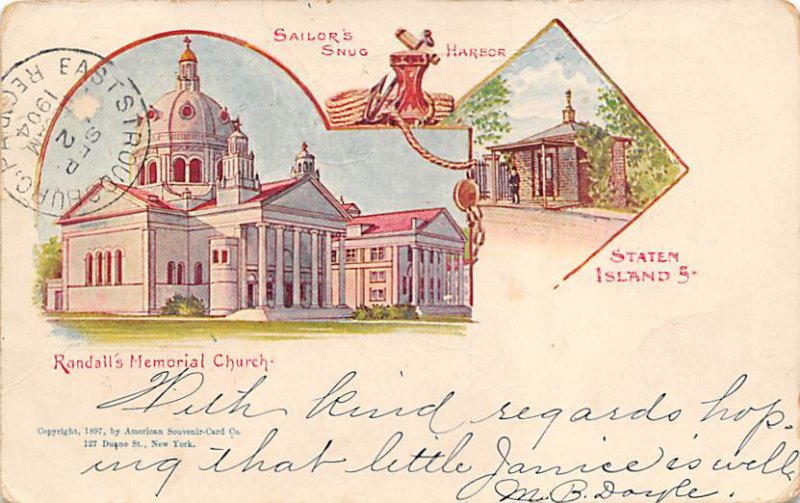 SAILOR'S
SNUG HARBOR
EAST STROUDSBURG, PA.
SEP
2
AM
1904
REC'D
STATEN
ISLAND 5-
Randall's Memorial Church-
With kind regards hop-
Copyright, 1897, by American Souvenir-Card Co.
127 Duane St., New York.
ing that little Janice is well
M. B. Doyle.